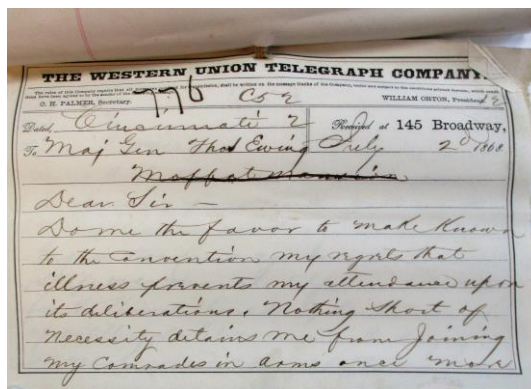 THE WESTERN UNION TELEGRAPH COMPANY.
776 C52
O. H. PALMER, Secretary. WILLIAM ORTON, President
Dated, Cincinnati 2 Received at 145 Broadway,
To Maj Gen Thos Ewing July 2d 1868
Moffat Mansion
Dear Sir —
Do me the favor to make Known
to the Convention my regrets that
illness prevents my attendance upon
its deliberations. Nothing Short of
Necessity detains me from Joining
My Comrades in Arms once More